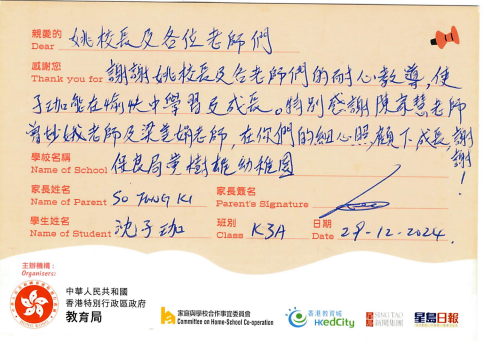 親愛的
Dear 姚校長及各位老師們
感謝您
Thank you for 謝謝姚校長及各老師們的耐心教導，使
子珈能在愉快中學習及成長。特別感謝陳家慧老師
曾妙娥老師及梁楚娟老師，在你們的細心照顧下成長，謝謝！
學校名稱
Name of School 保良局黃樹雄幼稚園
家長姓名
Name of Parent SO TUNG KI
家長簽名
Parent's Signature
學生姓名
Name of Student 沈子珈
班別
Class K3A
日期
Date 29-12-2024.
主辦機構：
Organisers:
中華人民共和國
香港特別行政區政府
教育局
家庭與學校合作事宜委員會
Committee on Home-School Co-operation
香港教育城
HKedCity
SING TAO
新聞集團
星島日報